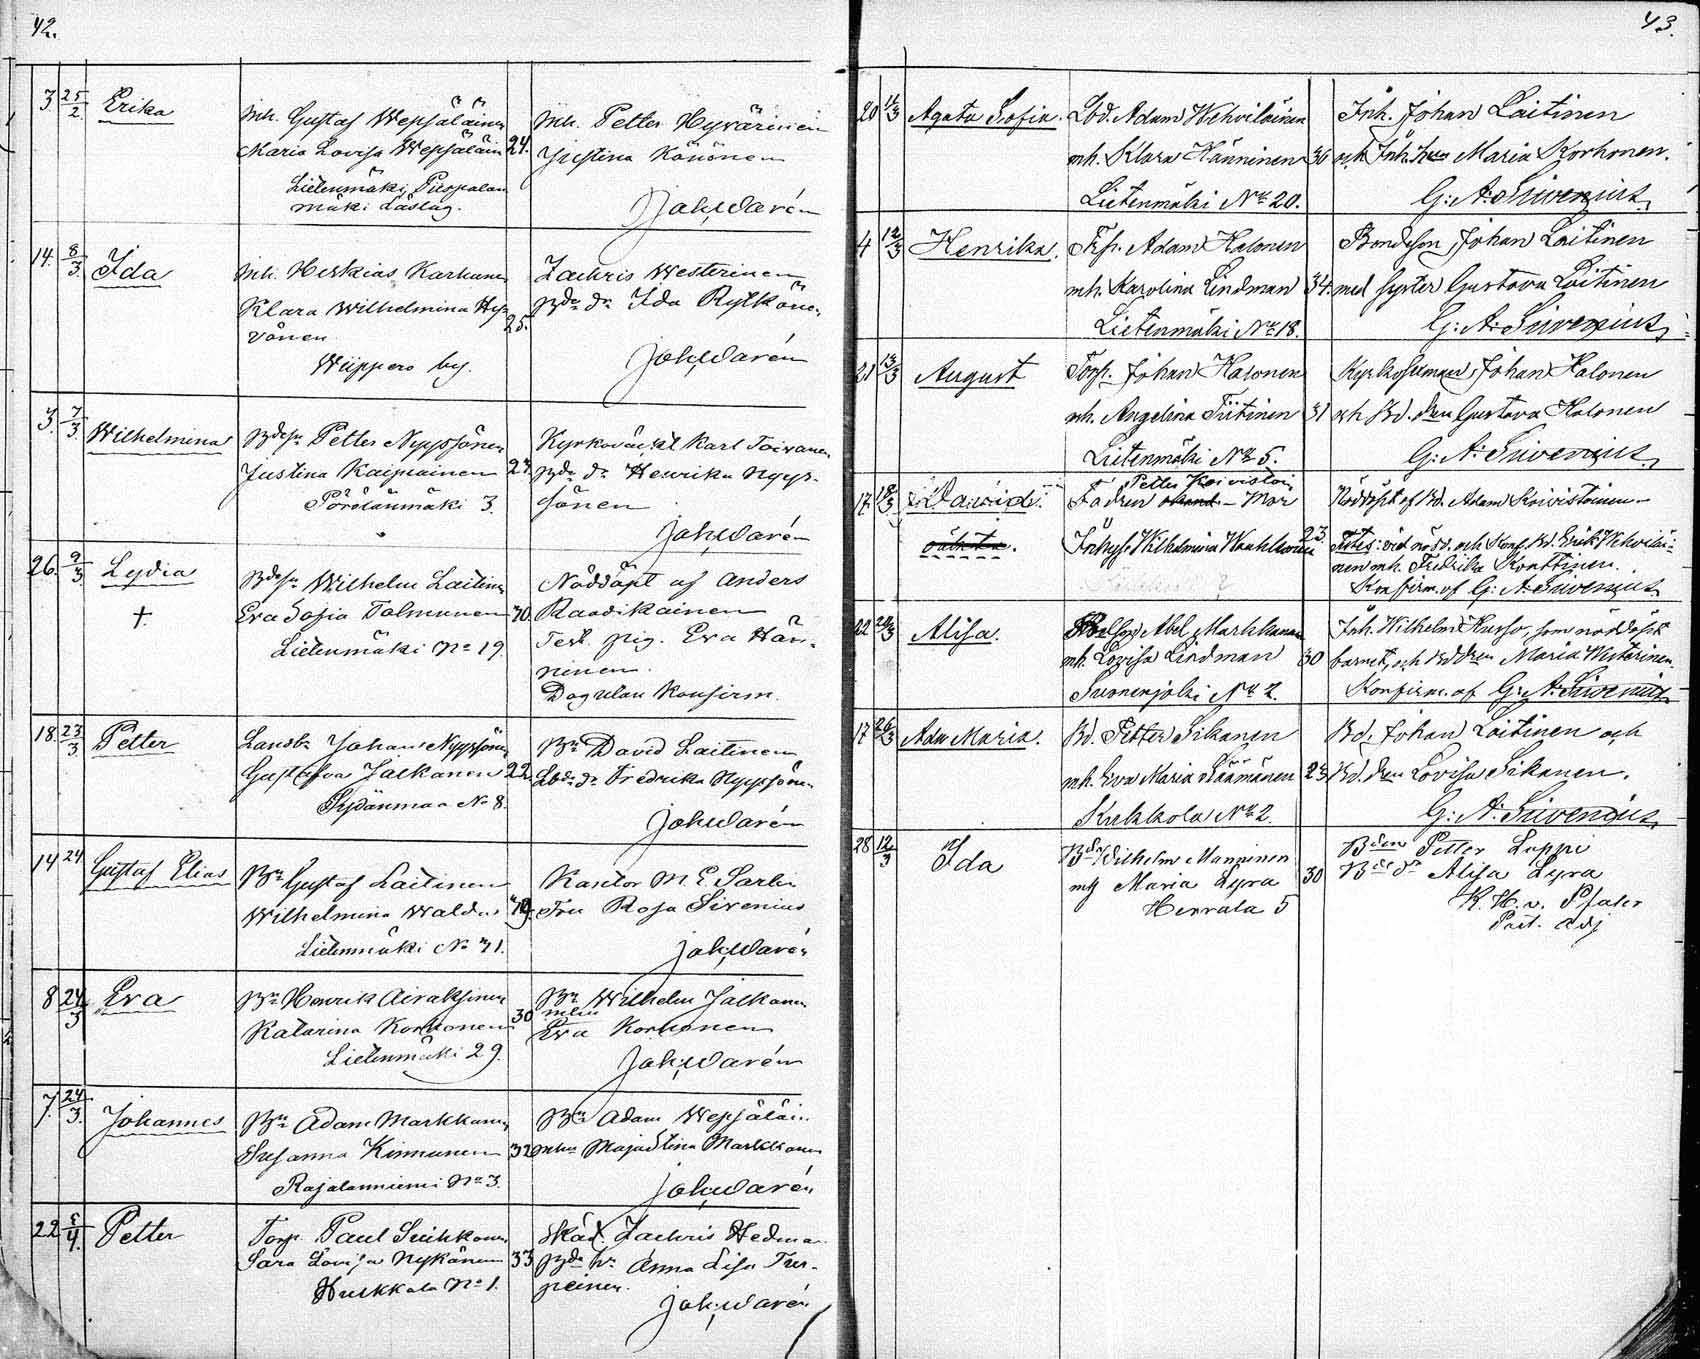 42.
3 25/2 Erika
Inh. Gustaf Wepsäläinen
Maria Lovisa Wepsäläin 24.
Lietenmäki, Pispalan
mäki Låstag.
Inh. Petter Hyvärinen
Justina Könönen
Joh. Warén
14. 8/3 Ida
Inh. Heskias Karhunen
Klara Wilhelmina Hyvönen 25.
Wiippero by.
Zachris Westerinen
Bde dr Ida Rytköne
Joh. Warén
3. 7/3 Wilhelmina
Bdesn Petter Nyyssönen
Justina Kaipiainen 27.
Pörölänmäki 3.
Kyrkovärd Karl Toivanen
Bde dr Henrika Nyys-
sönen
Joh. Warén
26. 9/3 Lydia
†.
Bdesn Wilhelm Laitine
Eva Sofia Tolmunen 40.
Lietenmäki No 19.
Nöddöpt af Anders
Raadikainen
Test. pig. Eva Hän-
ninen.
Dagulau Konfirm.
18. 23/3 Petter
Landb. Johan Nyyssönen
Gustafva Jalkanen 22.
Sydänmaa No 8.
Bn David Laitinen
Lbde dr Fredrika Nyyssöne
Joh. Warén
14 24 Gustaf Elias
Bn Gustaf Laitinen
Wilhelmina Waldén
Lietenmäki No 41.
Kantor M. E. Sarlin
Fru Rosa Sirenius
Joh. Warén
8 24/3 Eva
Bn Henrik Airaksinen
Katarina Korhonen 30
Lietenmäki 29.
Bn Wilhelm Jalkanen
mhu
Eva Korhonen
Joh. Warén
7. 24/3. Johannes
Bn Adam Markkanen
Susanna Kinnunen 32
Rajalanniemi No 3.
Bn Adam Wepsäläin
mhu Maja Stina Markkanen
Joh. Warén
22 5/4. Petter
Torp. Paul Suihkonen
Sara Lovisa Nykänen 33
Huskkala No 1.
Skäd. Zachris Hedman
Bde hr Anna Lisa Tur-
peinen.
Joh. Warén
43.
20 11/3 Agata Sofia.
Lbd. Adam Wehviläinen
mh. Klara Hänninen 36
Lietenmäki No 20.
Inh. Johan Laitinen
och Inh. hru Maria Korhonen.
G: A: Sirenius.
4 12/3 Henrika.
Trp. Adam Halonen
mh. Karolina Lindman 34.
Lietenmäki No 18.
Bondeson Johan Laitinen
med syster Gustava Laitinen
G: A: Sirenius,
21 13/3 August
Torp. Johan Halonen
mh. Angelina Tiitinen 31
Lietenmäki No 5.
Kyrkofurman Johan Halonen
och Bd. dren Gustava Halonen
G: A: Sirenius,
17 18/3 David.
oäkta.
Petter Koivistoi
Fadren okänd - Mor
Inhys. Wilhelmina Wauhkonen 23.
Nöddöpt af Bd. Adam Koivistoinen.-
Testes: vid nödd. och Konf. Bd. Erik Wehviläi-
nen mh. Fredrika Konttinen.
Konfirm. af G: A: Sirenius
22 20/3 Alisa.
Abel Markkanen
mh. Lovisa Lindman 30
Suonenjoki No 2.
Inh. Wilhelm Husso, som nöddöpt
barnet, och Bd dren Maria Westerinen.
Konfirm. af G: A: Sirenius
17 26/3 Ada Maria.
Bd. Petter Sikanen
mh. Eva Maria Säämänen 23
Kukkola No 2.
Bd. Johan Laitinen och
Bd. dren Lovisa Sikanen.
G: A: Sirenius,
28 12/3 Ida
Bdn Wilhelm Manninen
mh Maria Lyra 30
Herrala 5
Bden Petter Lappi
Bde dr Alisa Lyra
K. H. v. Pfaler
Past. adj